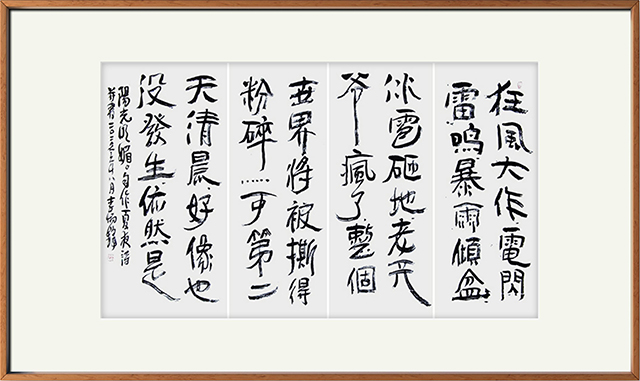 狂風大作電閃
雷鳴暴雨傾盆
冰雹砸地老天
爷瘋了整個
世界將被撕得
粉碎……可第二
天清晨好像也
没發生依然是
陽光明媚。自作夏夜诗